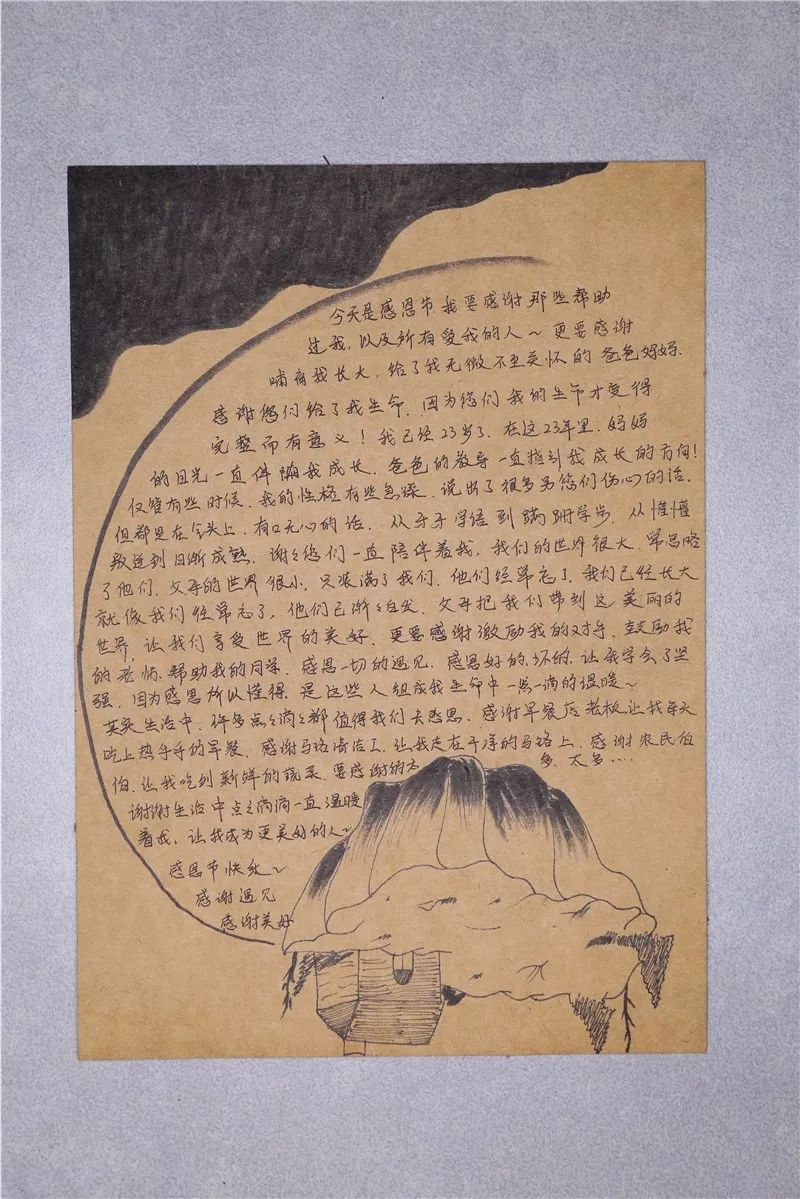 今天是感恩节.我要感谢那些帮助
过我,以及所有爱我的人~更要感谢
哺育我长大,给了我无微不至关怀的爸爸妈妈.
感谢您们给了我生命.因为您们我的生命才变得
完整而有意义!我已经23岁了.在这23年里.妈妈
的目光一直伴随我成长.爸爸的教导一直指引我成长的方向!
仅管有些时候.我的性格有些急躁.说出了很多另您们伤心的话.
但都是在气头上,有口无心的话.从牙牙学语到蹒跚学步.从懵懂
叛逆到日渐成熟.谢谢您们一直陪伴着我,我们的世界很大.常忽略
了他们.父母的世界很小.只装满了我们.他们经常忘了.我们已经长大
就像我们经常忘了,他们已渐渐白发.父母把我们带到这美丽的
世界,让我们享受世界的美好.更要感谢激励我的对手.鼓励我
的老师,帮助我的同学.感恩一切的遇见.感恩好的.坏的.让我学会了坚
强.因为感恩所以懂得.是这些人组成我生命中一点一滴的温暖~
其实生活中.许多点点滴滴都值得我们去感恩.感谢早餐店老板让我每天
吃上热乎乎的早餐.感谢马路清洁工.让我走在干净的马路上.感谢农民伯
伯.让我吃到新鲜的蔬菜.要感谢的太多.太多....
谢谢生活中点点滴滴一直温暖
着我,让我成为更美好的人~
感恩节快乐~
感谢遇见
感谢美好